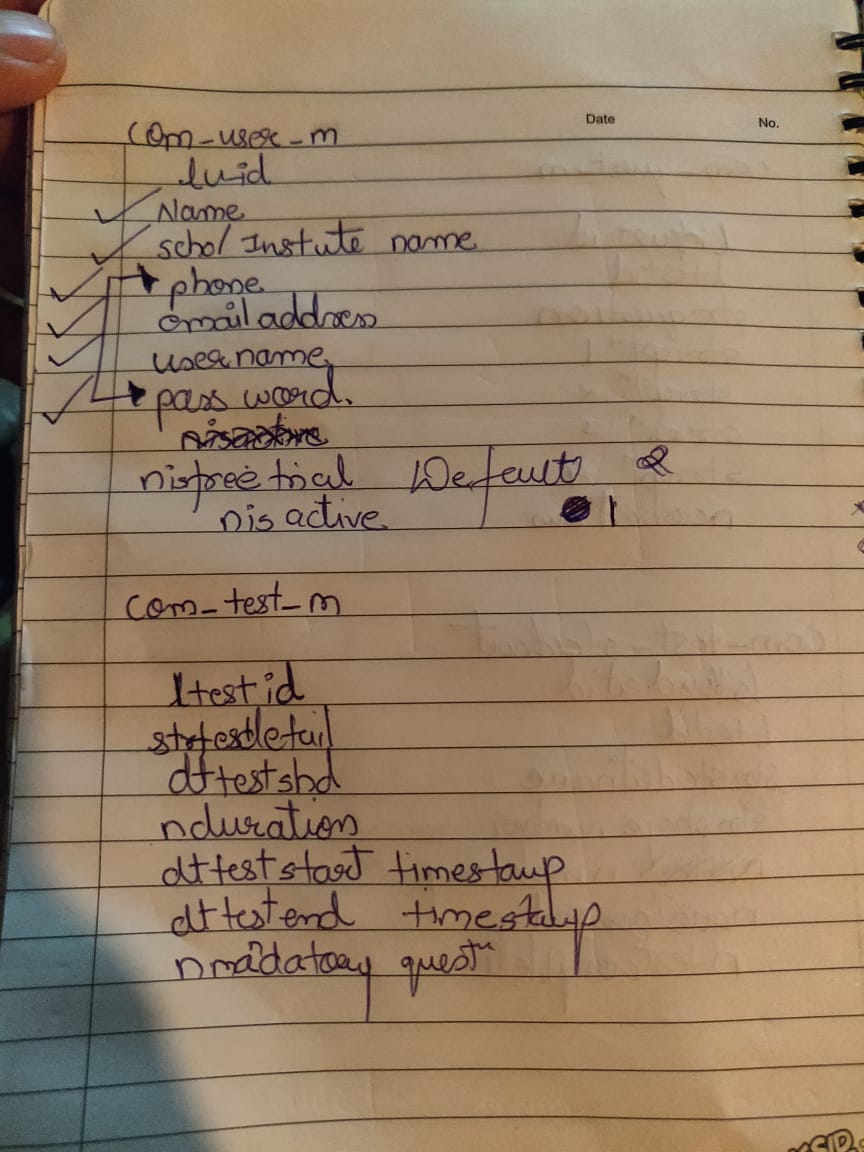 Date No.
com-user-m
luid
Name
schol Instute name
phone
email address
username
pass word.
nisfree trial Default 2
nis active 1
com-test-m
ltest id
dttestsbd
nduration
dttest start timestaup
dt test end timestayp
nmadatory quest